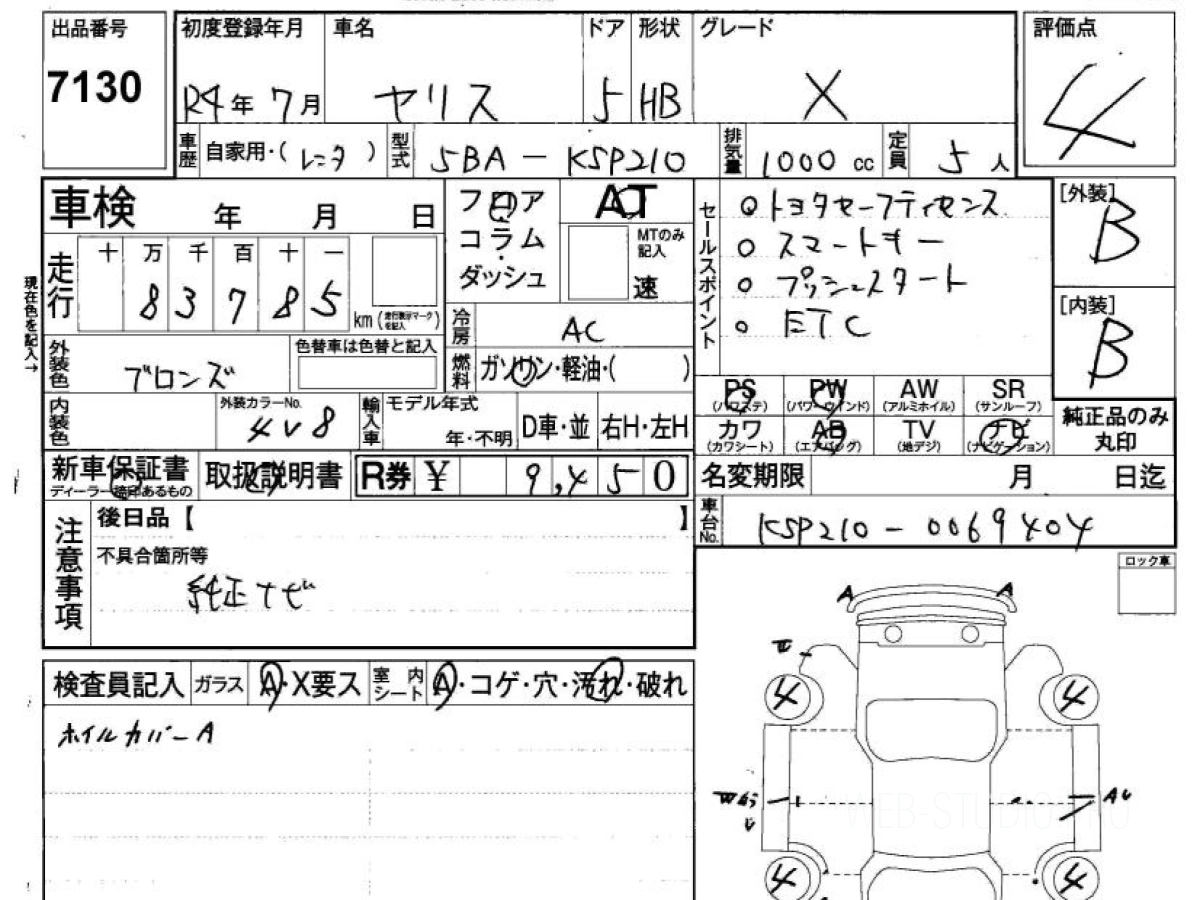 出品番号 初度登録年月 車名 ドア 形状 グレード 評価点
7130 R4年 7月 ヤリス 5 HB X 4
車歴 自家用・( レンタ ) 型式 5BA - KSP210 排気量 1000 cc 定員 5 人
車検 年 月 日 フロア AT セールスポイント ○トヨタセーフティセンス [外装]
コラム MTのみ記入 ○スマートキー B
走行 十 万 千 百 十 一 ダッシュ 速 ○プッシュスタート
8 3 7 8 5 km (走行表示マークを記入) 冷房 AC ○ETC [内装]
現在色を記入→
外装色 ブロンズ 色替車は色替と記入 燃料 ガソリン・軽油・( ) B
PS (パワステ) PW (パワーウインド) AW (アルミホイル) SR (サンルーフ)
内装色 外装カラーNo. 4V8 輸入車 モデル年式 年・不明 D車・並 右H・左H カワ (カワシート) AB (エアバッグ) TV (地デジ) ナビ (ナビゲーション) 純正品のみ丸印
新車保証書 ディーラー捺印あるもの 取扱説明書 R券 ¥ 9,450 名変期限 月 日迄
注意事項 後日品【 】 車台No. KSP210-0069404
不具合箇所等 ロック車
純正ナビ
A A
検査員記入 ガラス A・X要ス 室内シート A・コゲ・穴・汚れ・破れ 4 4
ホイルカバーA
AU
WEB-STUDIO.PRO
4 4